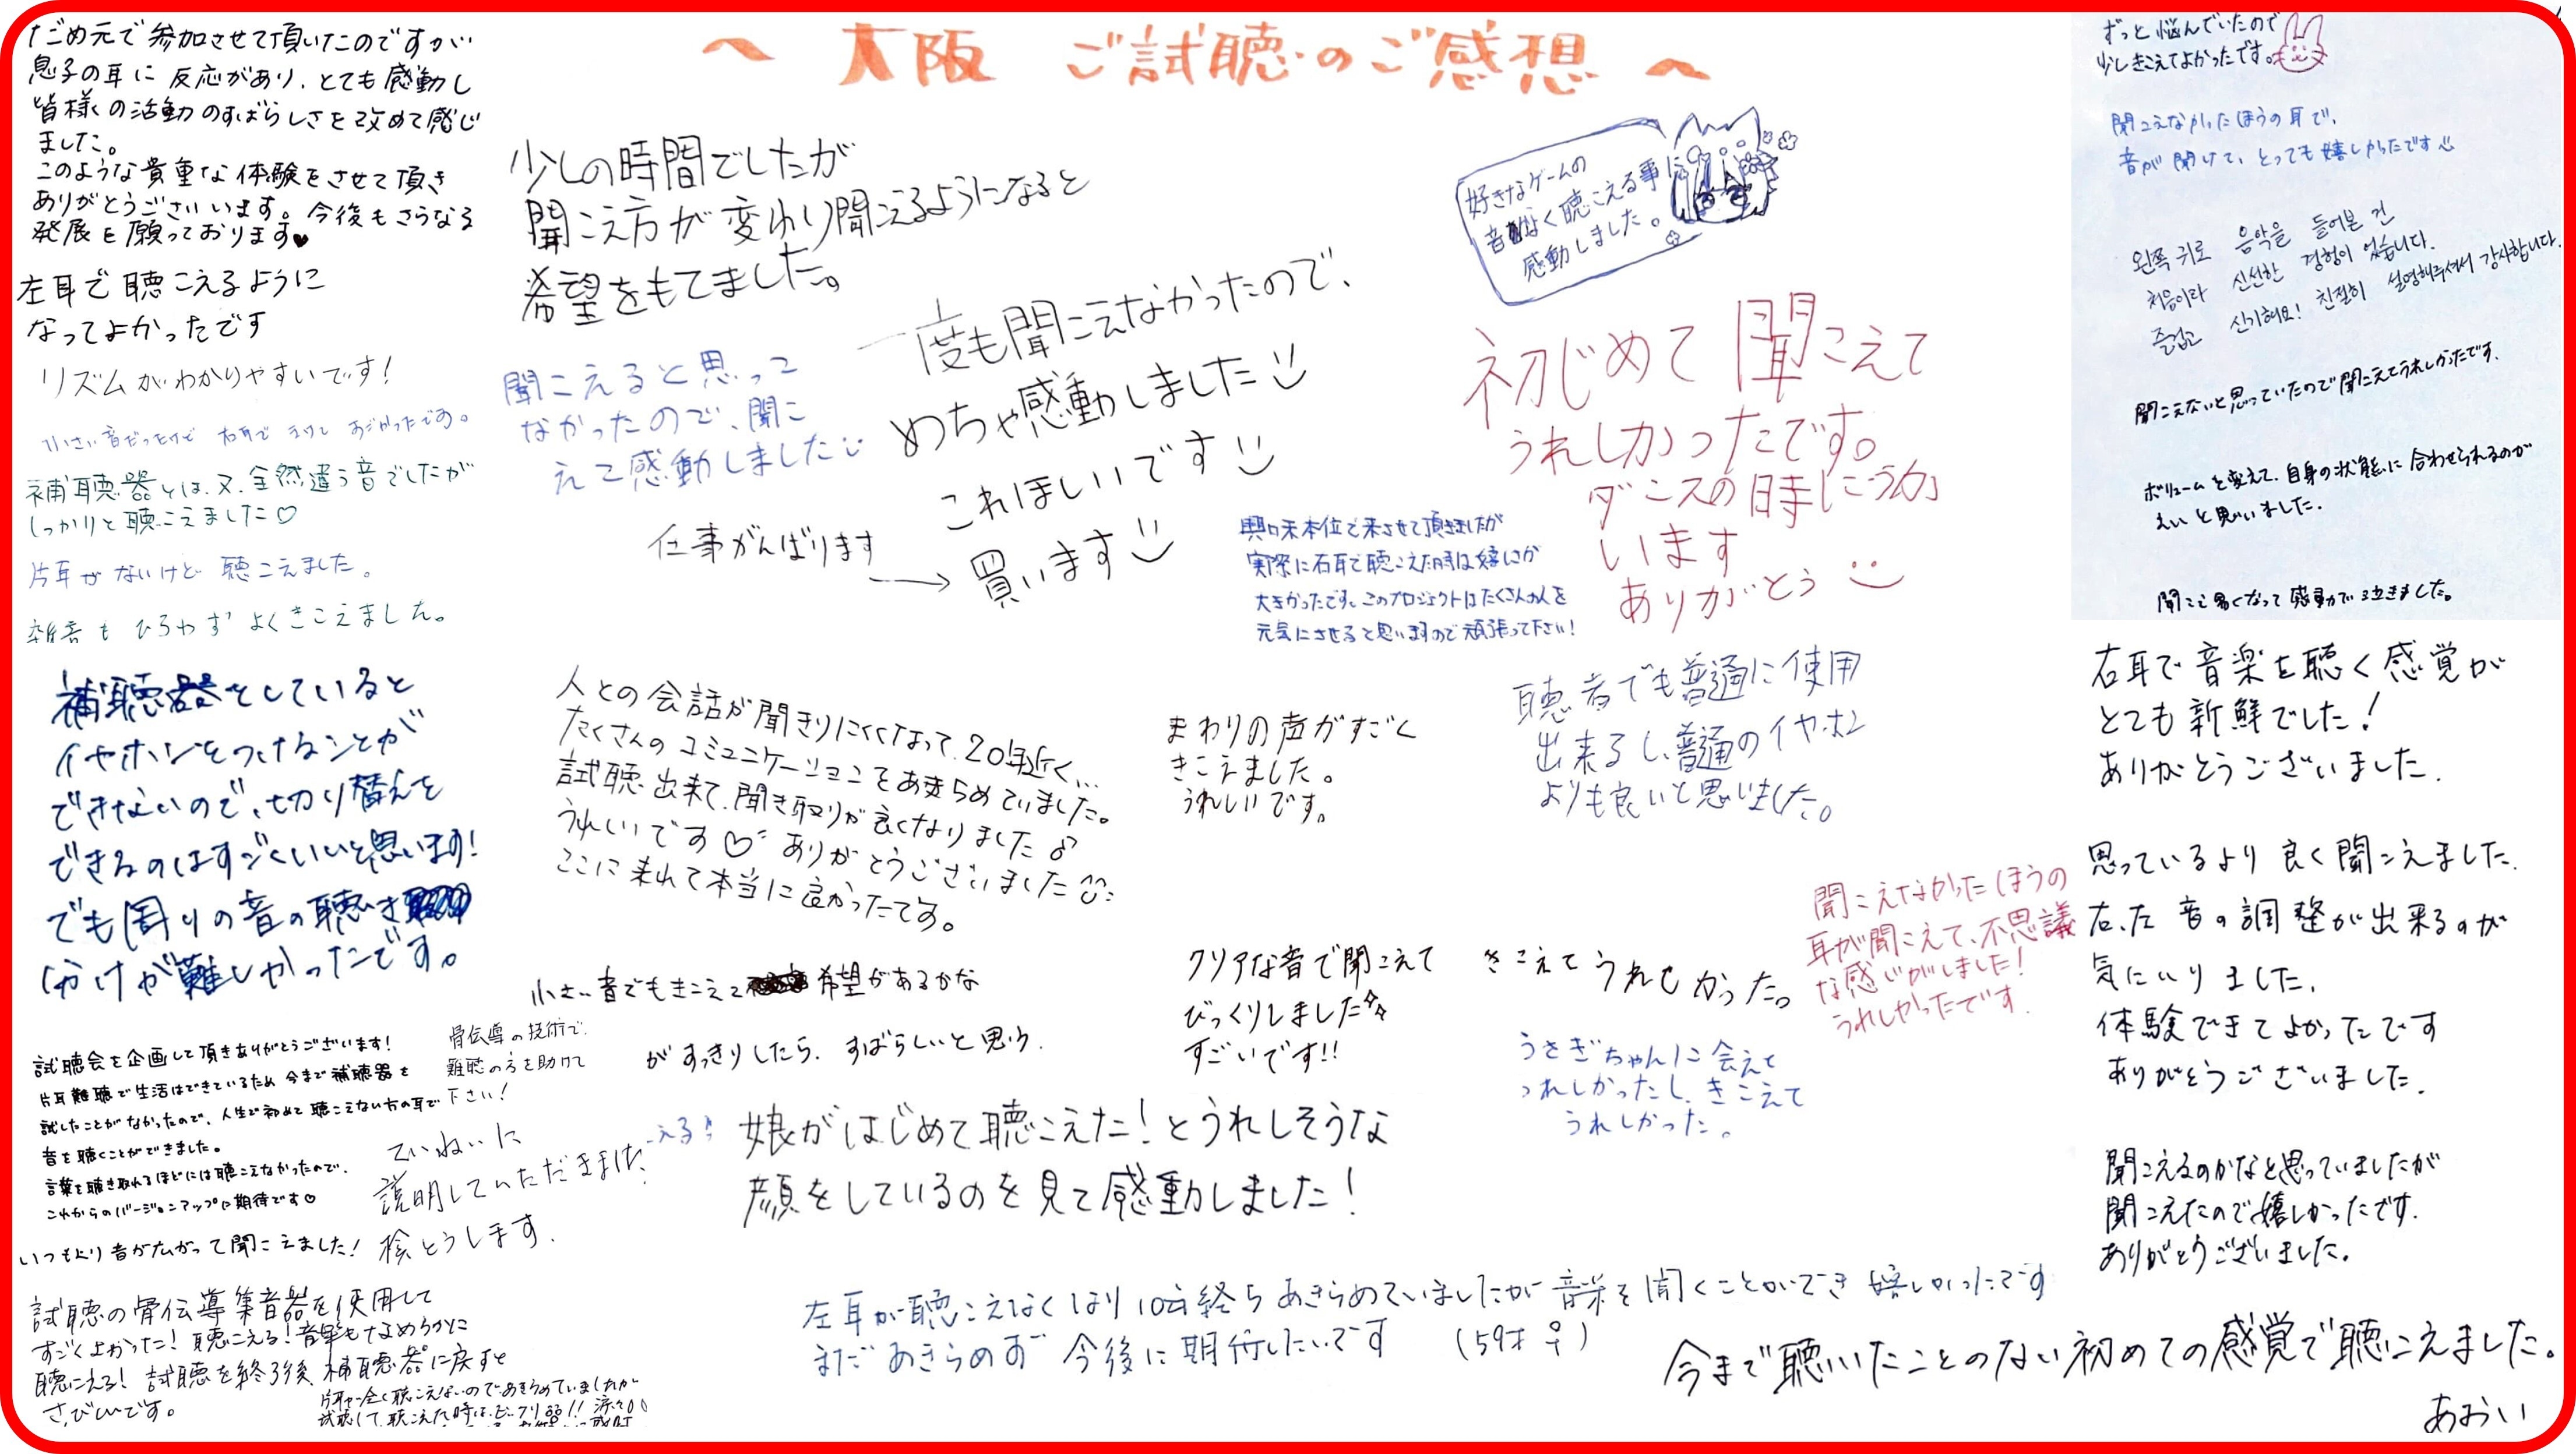 〜 大阪 ご試聴のご感想 〜
だめ元で参加させて頂いたのですが
息子の耳に反応があり、とても感動し
皆様の活動のすばらしさを改めて感じ
ました。
このような貴重な体験をさせて頂き
ありがとうございます。今後もさらなる
発展を願っております♥
左耳で聴こえるように
なってよかったです
リズムがわかりやすいです!
小さい音だったけど 右耳で
補聴器とは、又、全然違う音でしたが
しっかりと聴こえました♡
片耳がないけど聴こえました。
雑音もひろわずよくきこえました。
補聴器をしていると
イヤホンをつけることが
できないので、切り替えを
できるのはすごくいいと思います!
でも周りの音の聴き
分けが難しかったです。
試聴会を企画して頂きありがとうございます!
片耳難聴で生活はできているため今まで補聴器を
試したことがなかったので、人生で初めて聴こえない方の耳で
音を聴くことができました。
言葉を聴き取れるほどには聴こえなかったので、
これからのバージョンアップに期待です♡
骨伝導の技術で、
難聴の方を助けて
下さい!
ていねいに
説明していただきました
検とうします.
いつもより音が広がって聞こえました!
試聴の骨伝導集音器を使用して
すごくよかった!聴こえる!音楽もなめらかに
聴こえる!試聴を終了後、補聴器に戻すと
さびしいです。
片耳が全く聴こえないのであきらめていましたが
試聴して、聴こえた時はビックリ!!
少しの時間でしたが
聞こえ方が変わり聞こえるようになると
希望をもてました。
聞こえると思って
なかったので、聞こ
えて感動しました
一度も聞こえなかったので、
めちゃ感動しました
これほしいです
仕事がんばります
→ 買います
好きなゲームの
音がなく聴こえる事に
感動しました。
初じめて聞こえて
うれしかったです。
ダンスの時につか
います
ありがとう
興味本位で来させて頂きましたが
実際に右耳で聴こえた時は嬉しさが
大きかったです。このプロジェクトはたくさんの人を
元気にさせると思いますので頑張って下さい!
人との会話が聞きりにくくなって、20年近く…
たくさんのコミュニケーションをあきらめていました。
試聴出来て、聞き取りが良くなりました♪
うれしいです♡ ありがとうございました
ここに来れて本当に良かったです。
まわりの声がすごく
きこえました。
うれしいです。
聴者でも普通に使用
出来るし、普通のイヤホン
よりも良いと思いました。
小さい音でもきこえて 希望があるかな
がすっきりしたら、すばらしいと思う.
クリアな音で聞こえて
びっくりしました
すごいです!!
きこえてうれしかった。
聞こえなかったほうの
耳が聞こえて、不思議
な感じがしました!
うれしかったです.
うさぎちゃんに会えて
うれしかったし、きこえて
うれしかった。
える!!
娘がはじめて聴こえた!とうれしそうな
顔をしているのを見て感動しました!
左耳が聴こえなくなり10年経ちあきらめていましたが音楽を聞くことができ嬉しかったです
まだあきらめず今後に期待したいです (59才 ♀)
今まで聴いたことのない初めての感覚で聴こえました。
あおい
ずっと悩んでいたので
少しきこえてよかったです。
聞こえなかったほうの耳で、
音が聞けて、とっても嬉しかったです
왼쪽 귀로 음악을 들어본 건
처음이라 신선한 경험이 었습니다.
즐겁고 신기해요! 친절히 설명해주셔서 감사합니다.
聞こえないと思っていたので聞こえてうれしかったです.
ボリュームを変えて、自身の状態に合わせられるのが
えいと思いました.
聞こえ易くなって感動で泣きました。
右耳で音楽を聴く感覚が
とても新鮮でした!
ありがとうございました.
思っているより良く聞こえました.
右、左音の調整が出来るのが
気にいりました.
体験できてよかったです
ありがとうございました.
聞こえるのかなと思っていましたが
聞こえたので嬉しかったです.
ありがとうございました。